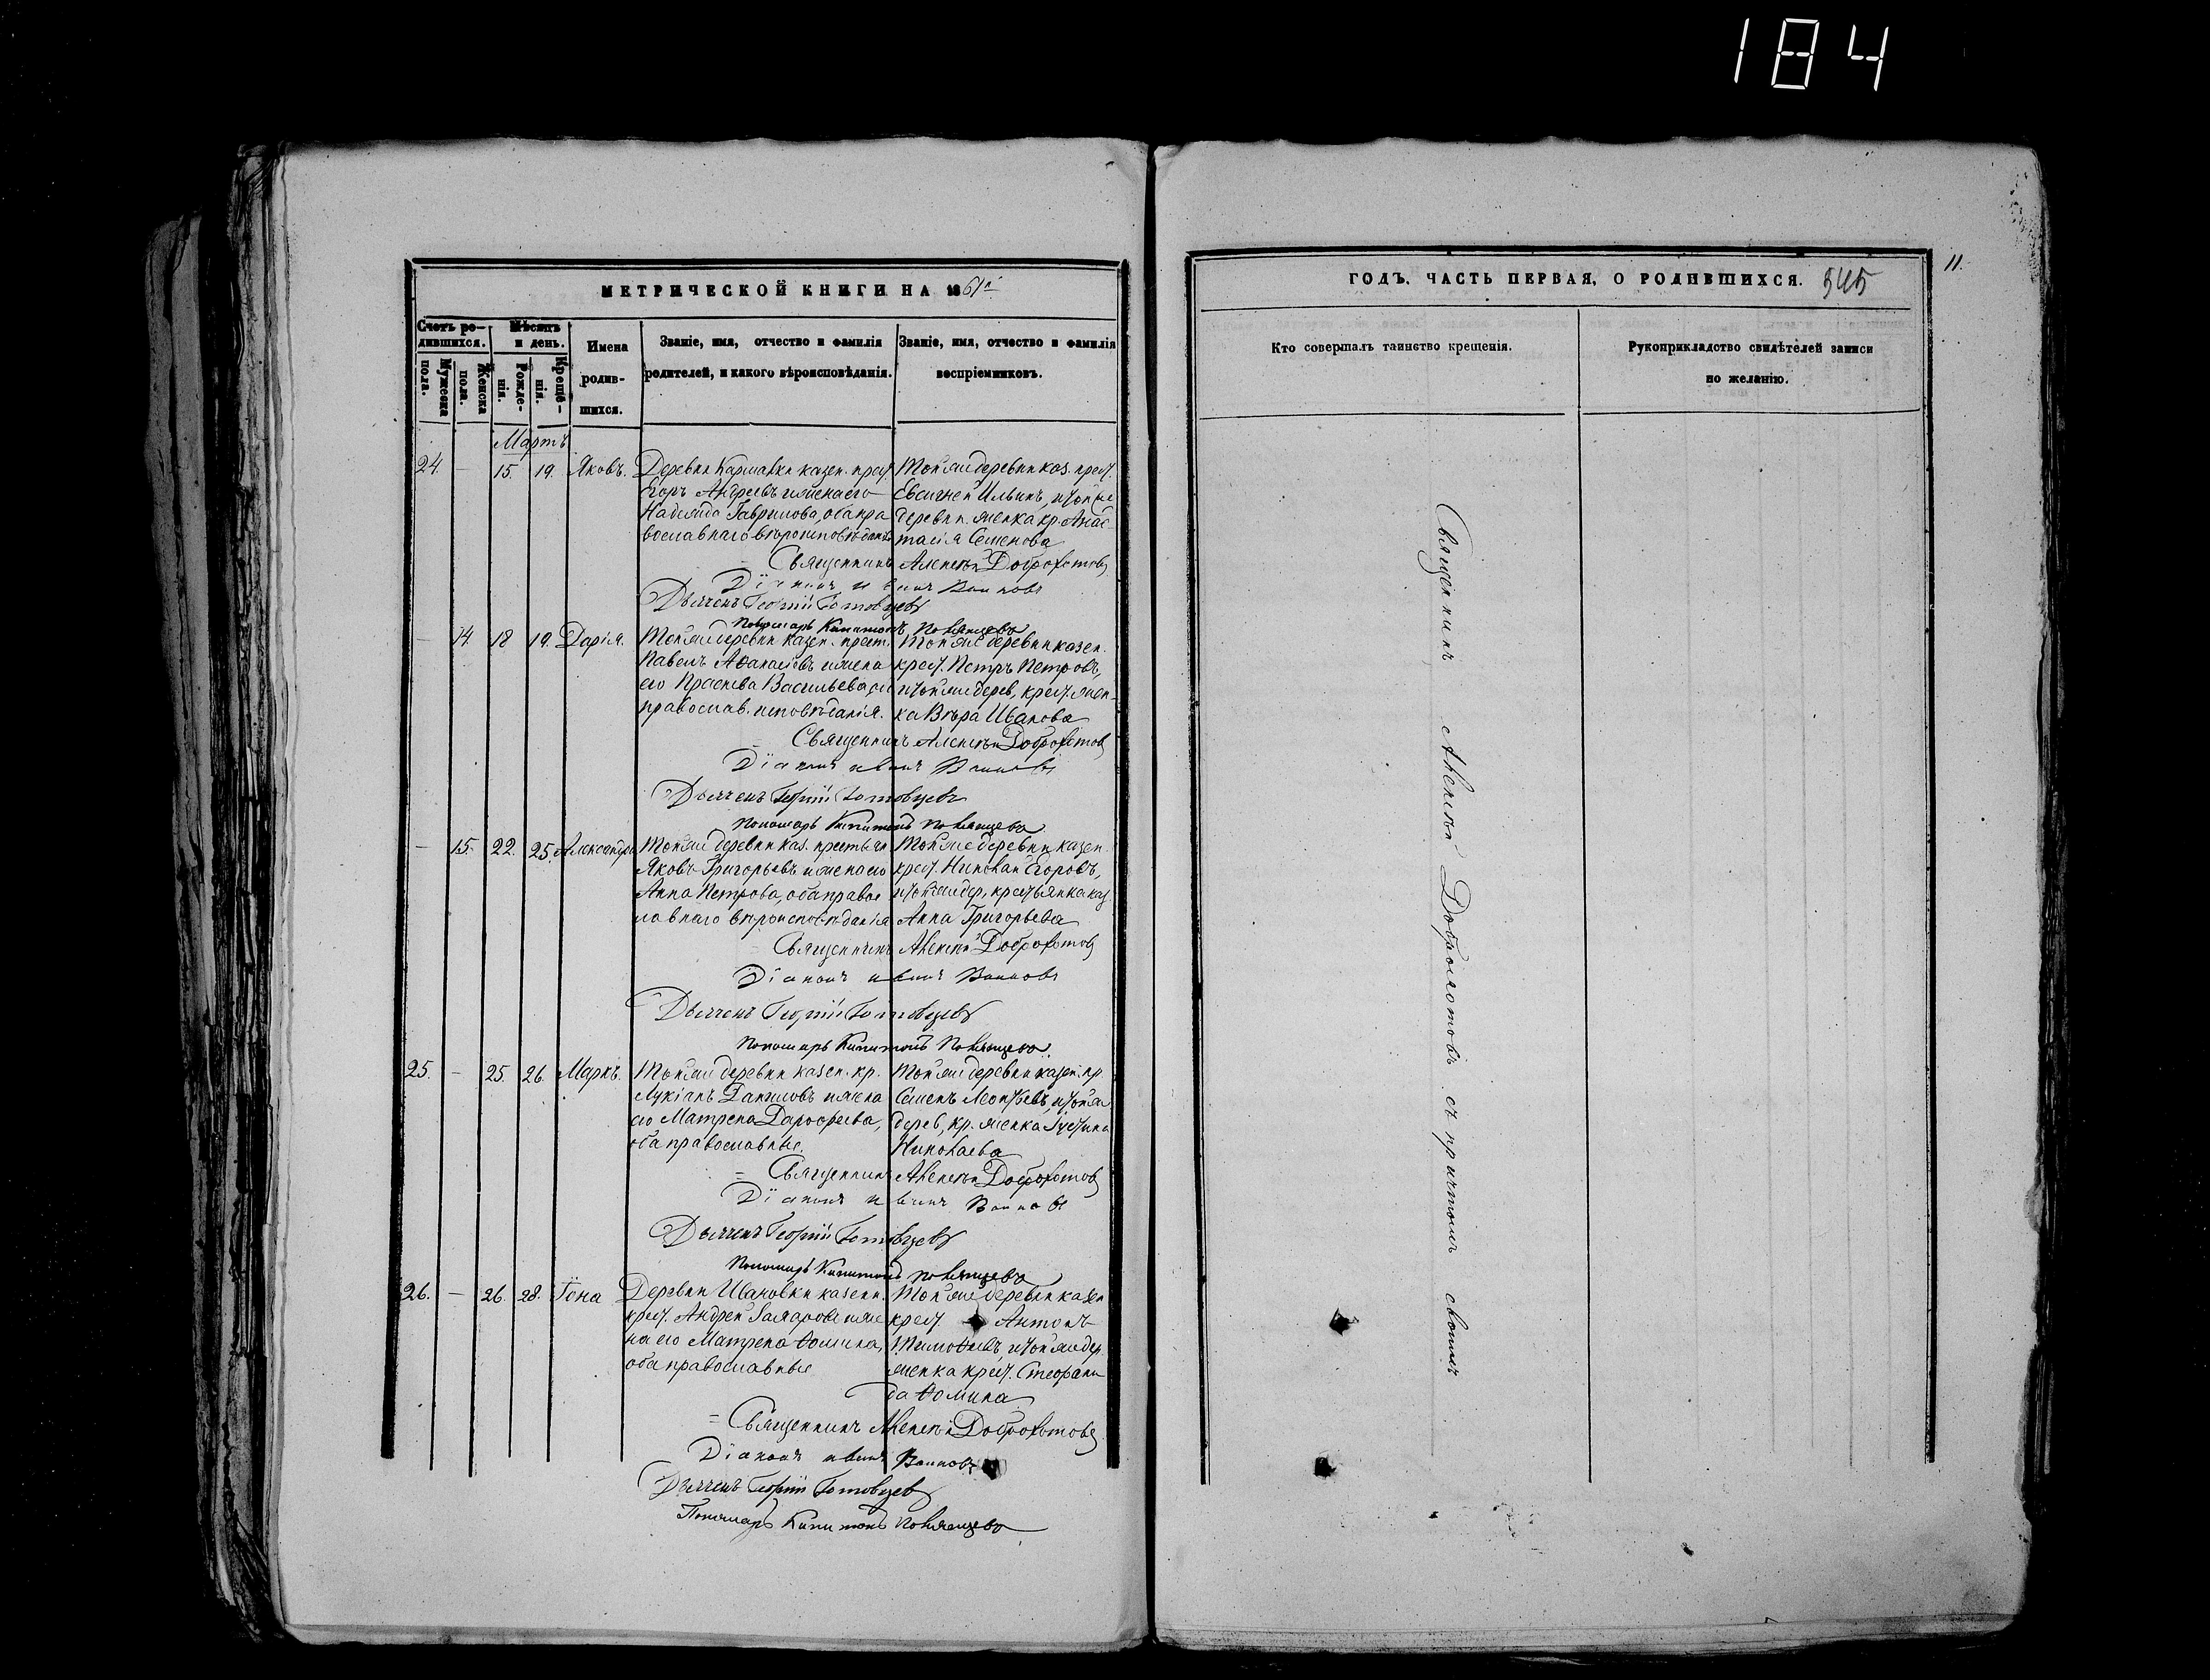 184
МЕТРИЧЕСКОЙ КНИГИ НА 1861 г.
Счетъ ро-
дившихся.
Мѣсяцъ
и день.
Мужеска
пола.
Женска
пола.
Рожде-
нія.
Креще-
нія.
Имена
родив-
шихся.
Званіе, имя, отчество и фамилія
родителей, и какого вѣроисповѣданія.
Званіе, имя, отчество и фамилія
воспріемниковъ.
Мартъ
24 — 15. 19. Яковъ.
Деревни казен. крест.
Егоръ Андреевъ и жена его
Надежда Гаврилова, оба пра
вославнаго вѣроисповѣдан.
Той же деревни каз. крест.
Евсигней Ильинъ, и той же
деревни женка кр. Анас-
тасія Семенова
Священникъ Алексѣй Доброхотовъ
Діаконъ Иванъ
Дьячекъ Георгій Готовцевъ
Пономарь Капитонъ
— 14 18 19. Дарія.
Той же деревни казен. крест.
Павелъ Аѳанасьевъ и жена
его Прасковья Васильева, оба
православ. исповѣданія.
Той же деревни казен.
крест. Петръ Петровъ,
и той же дерев, крест. жен-
ка Вѣра Иванова
Священникъ Алексѣй Доброхотовъ
Діаконъ Иванъ
Дьячекъ Георгій Готовцевъ
Пономарь Капитонъ
— 15. 22. 25. Александра
Той же деревни каз. крестьян
Яковъ Григорьевъ и жена его
Анна Петрова, оба правос
лавнаго вѣроисповѣданія
Той же деревни казен.
крест. Николай Егоровъ,
и той же дер, крестьянка каз.
Анна Григорьева
Священникъ Алексѣй Доброхотовъ
Діаконъ Иванъ
Дьячекъ Георгій Готовцевъ
Пономарь Капитонъ
25. — 25. 26. Маркъ.
Той же деревни казен. кр.
Лукіанъ Даниловъ и жена
его Матрена Дароѳеева,
оба православные.
Той же деревни казен. кр.
Семенъ Леонтьевъ, и той же
дерев, кр. женка Іустина
Николаева
Священникъ Алексѣй Доброхотовъ
Діаконъ Иванъ
Дьячекъ Георгій Готовцевъ
Пономарь Капитонъ
26. — 26. 28. Іона
Деревни Ивановки казенн.
крест. Андрей и же
на его Матрена Ѳомина,
оба православные
Той же деревни казен
крест. Антонъ
Тимоѳеевъ, и той же дер.
женка крест. Стефани
да Ѳомина
Священникъ Алексѣй Доброхотовъ
Діаконъ Иванъ
Дьячекъ Георгій Готовцевъ
Пономарь Капитонъ
ГОДЪ. ЧАСТЬ ПЕРВАЯ, О РОДИВШИХСЯ.
545
11.
Кто совершалъ таинство крещенія.
Рукоприкладство свидѣтелей записи
по желанію.
Священникъ Алексѣй Доброхотовъ съ причтомъ своимъ